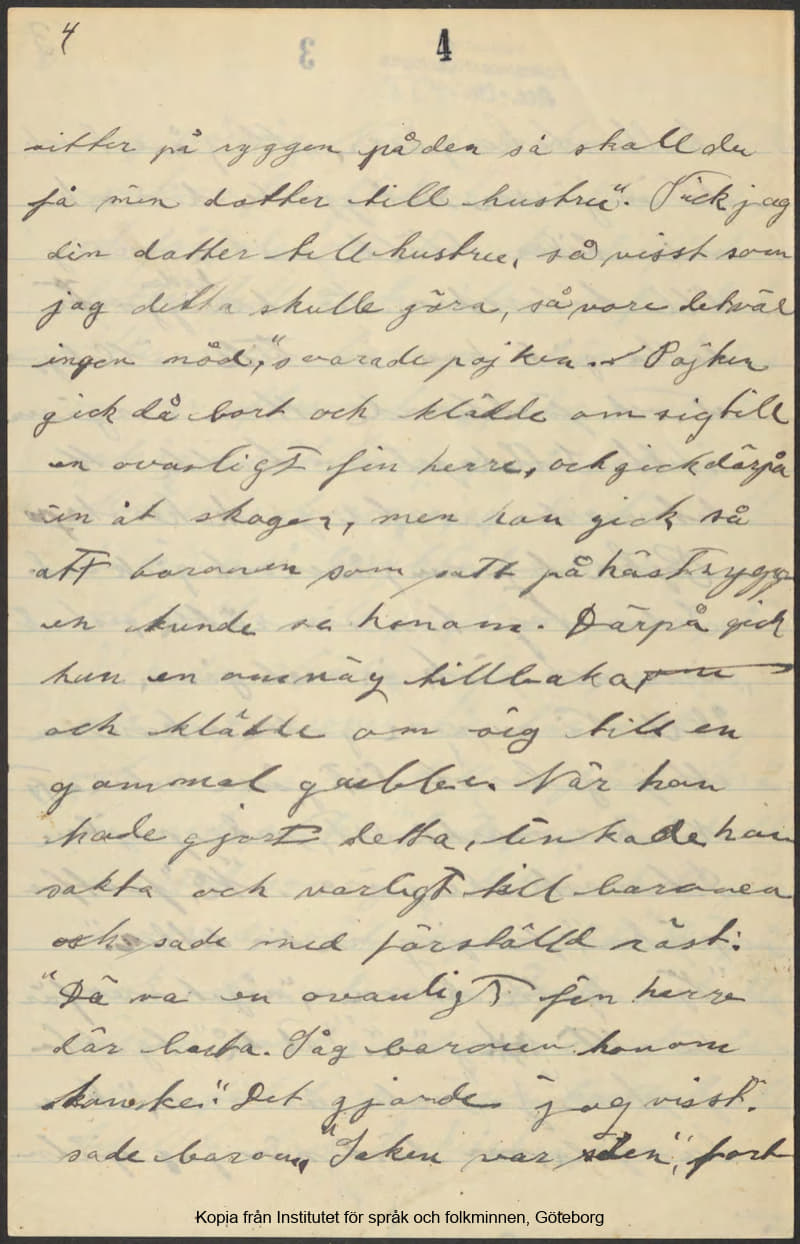 4
3
4
sitter på ryggen på den så skall du
få min dotter till hustru". "Fick jag
din dotter till hustru, så visst som
jag detta skulle göra, så vore det väl
ingen nöd," svarade pojken. Pojken
gick då bort och klädde om sig till
en ovanligt fin herre, och gick därpå
in åt skogen, men han gick så
att baronen som satt på hästrygg-
en kunde se honom. Därpå gick
han en omväg tillbaka,
och klädde om sig till en
gammal gubbe. När han
hade gjort detta, linkade han
sakta och varligt till baronen
och sade med förställd röst:
"Dä va en ovanligt fin herre
där borta. Såg baronen honom
kanske". Det gjorde jag visst".
sade baronen, "Saken var den", fort
Kopia från Institutet för språk och folkminnen, Göteborg